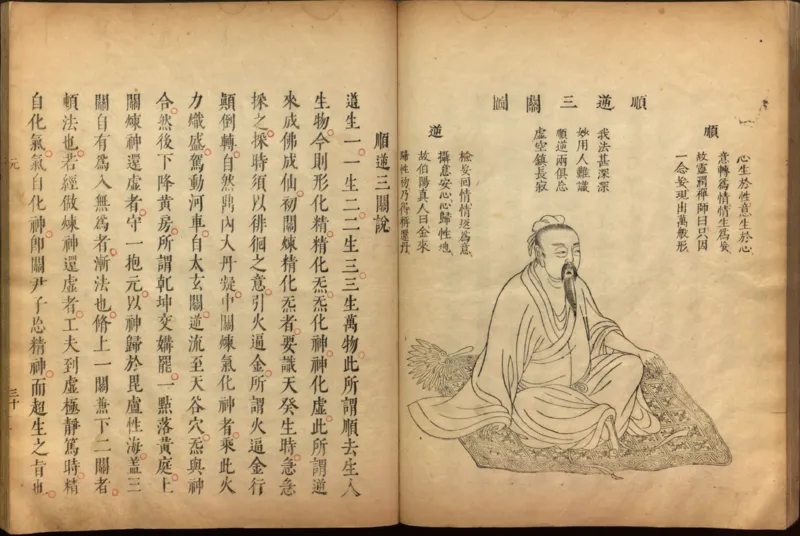 順逆三關圖
順
心生於性意生於心
意轉爲情情生爲妄
故靈潤禪師曰只因
一念妄現出萬般形
我法甚深深
妙用人難識
順逆兩俱忘
虛空鎮長寂
逆
檢妄回情情返爲意
攝意安心心歸性地
故伯陽真人曰金來
歸性初乃得稱還丹
順逆三關說
道生一一生二二生三三生萬物此所謂順去生人
生物今則形化精精化炁炁化神神化虛此所謂逆
來成佛成仙初關煉精化炁者要識天癸生時急急
採之採時須以徘徊之意引火逼金所謂火逼金行
顛倒轉自然鼎內大丹凝中關煉氣化神者乘此火
力熾盛駕動河車自太玄關逆流至天谷穴炁與神
合然後下降黃房所謂乾坤交媾罷一點落黃庭上
關煉神還虛者守一抱元以神歸於毘盧性海蓋三
關自有爲入無爲者漸法也脩上一關兼下二關者
頓法也若徑做煉神還虛者工夫到虛極靜篤時精
自化氣氣自化神即關尹子忘精神而超生之旨也
元
三十